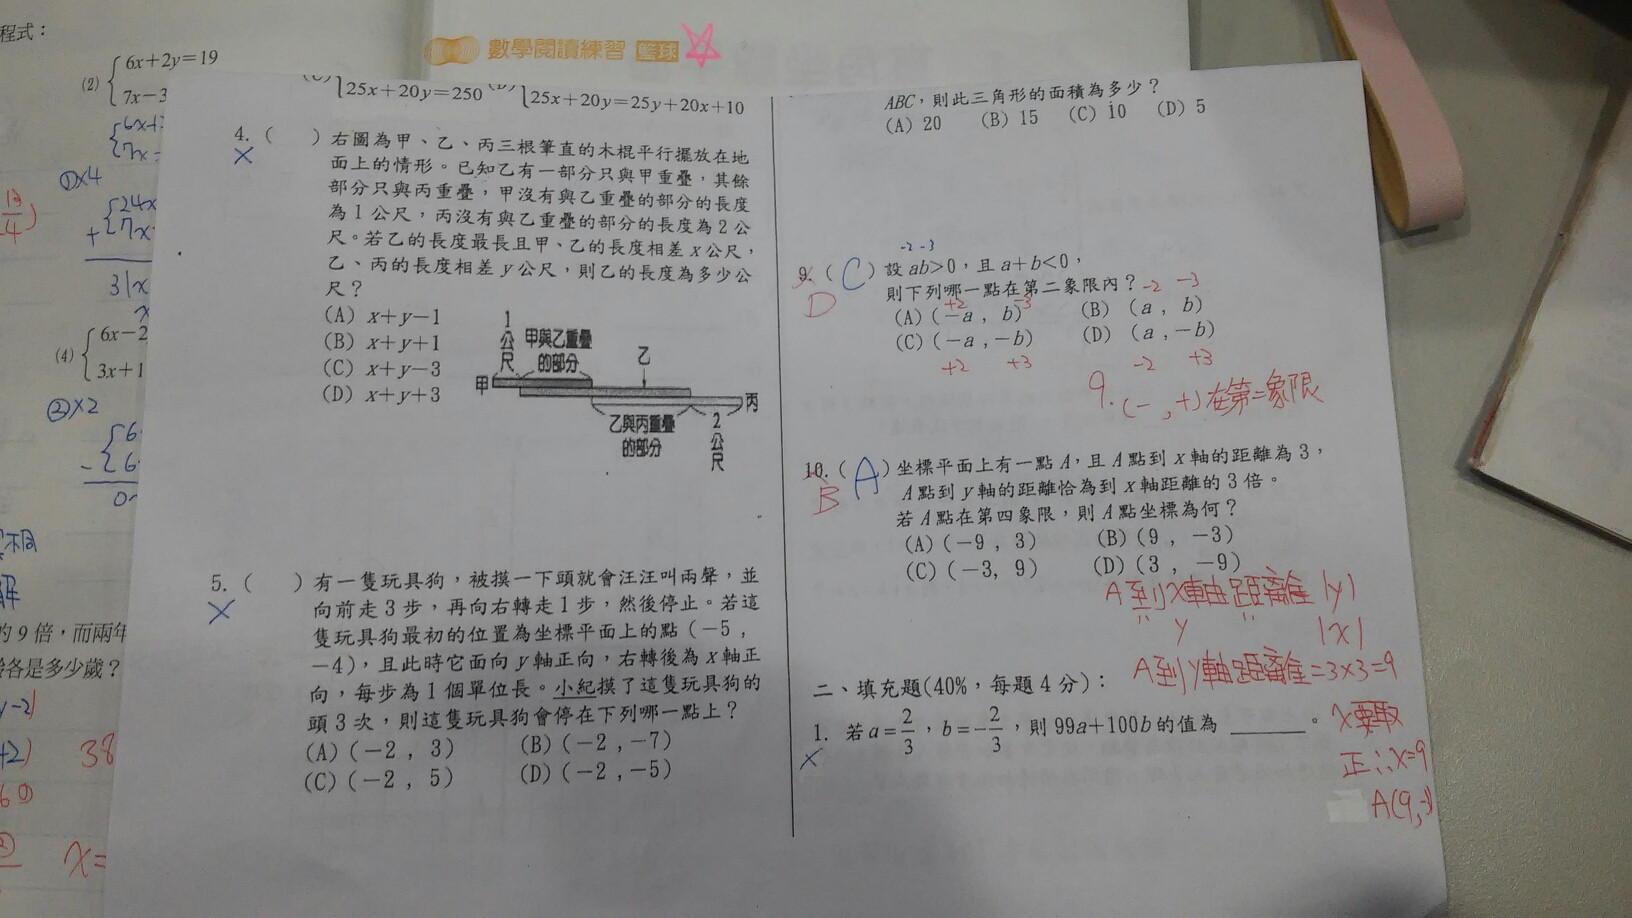 程式：
(2) 6x+2y=19
7x-3
①×4
24x
7x
31x
(4) 6x-2
3x+1
②×2
的9倍，而兩年
各是多少歲？
數學閱讀練習 籃球
25x+20y=250
25x+20y=25y+20x+10
4. (　) 右圖為甲、乙、丙三根筆直的木棍平行擺放在地
面上的情形。已知乙有一部分只與甲重疊，其餘
部分只與丙重疊，甲沒有與乙重疊的部分的長度
為1公尺，丙沒有與乙重疊的部分的長度為2公
尺。若乙的長度最長且甲、乙的長度相差x公尺，
乙、丙的長度相差y公尺，則乙的長度為多少公
尺？
(A) x+y-1
(B) x+y+1
(C) x+y-3
(D) x+y+3
1公尺
甲與乙重疊
的部分
乙
甲
丙
乙與丙重疊
的部分
2公尺
5. (　) 有一隻玩具狗，被摸一下頭就會汪汪叫兩聲，並
向前走3步，再向右轉走1步，然後停止。若這
隻玩具狗最初的位置為坐標平面上的點(-5，
-4)，且此時它面向y軸正向，右轉後為x軸正
向，每步為1個單位長。小紀摸了這隻玩具狗的
頭3次，則這隻玩具狗會停在下列哪一點上？
(A)(-2，3) (B)(-2，-7)
(C)(-2，5) (D)(-2，-5)
ABC，則此三角形的面積為多少？
(A) 20 (B) 15 (C) 10 (D) 5
-2 -3
9. ( C ) 設ab>0，且a+b<0，
D 則下列哪一點在第二象限內？ -2 -3
+2 -3
(A)(-a，b) (B) (a，b)
(C)(-a，-b) (D) (a，-b)
+2 +3 -2 +3
9. (-,+)在第二象限
10. ( A ) 坐標平面上有一點A，且A點到x軸的距離為3，
B A點到y軸的距離恰為到x軸距離的3倍。
若A點在第四象限，則A點坐標為何？
(A)(-9，3) (B)(9，-3)
(C)(-3，9) (D)(3，-9)
A到x軸距離|y|
" y " |x|
A到y軸距離=3×3=9
二、填充題(40%，每題4分)：
1. 若a=2/3，b=-2/3，則99a+100b的值為 ______。
x要取
正∴x=9
A(9,-
38
x=